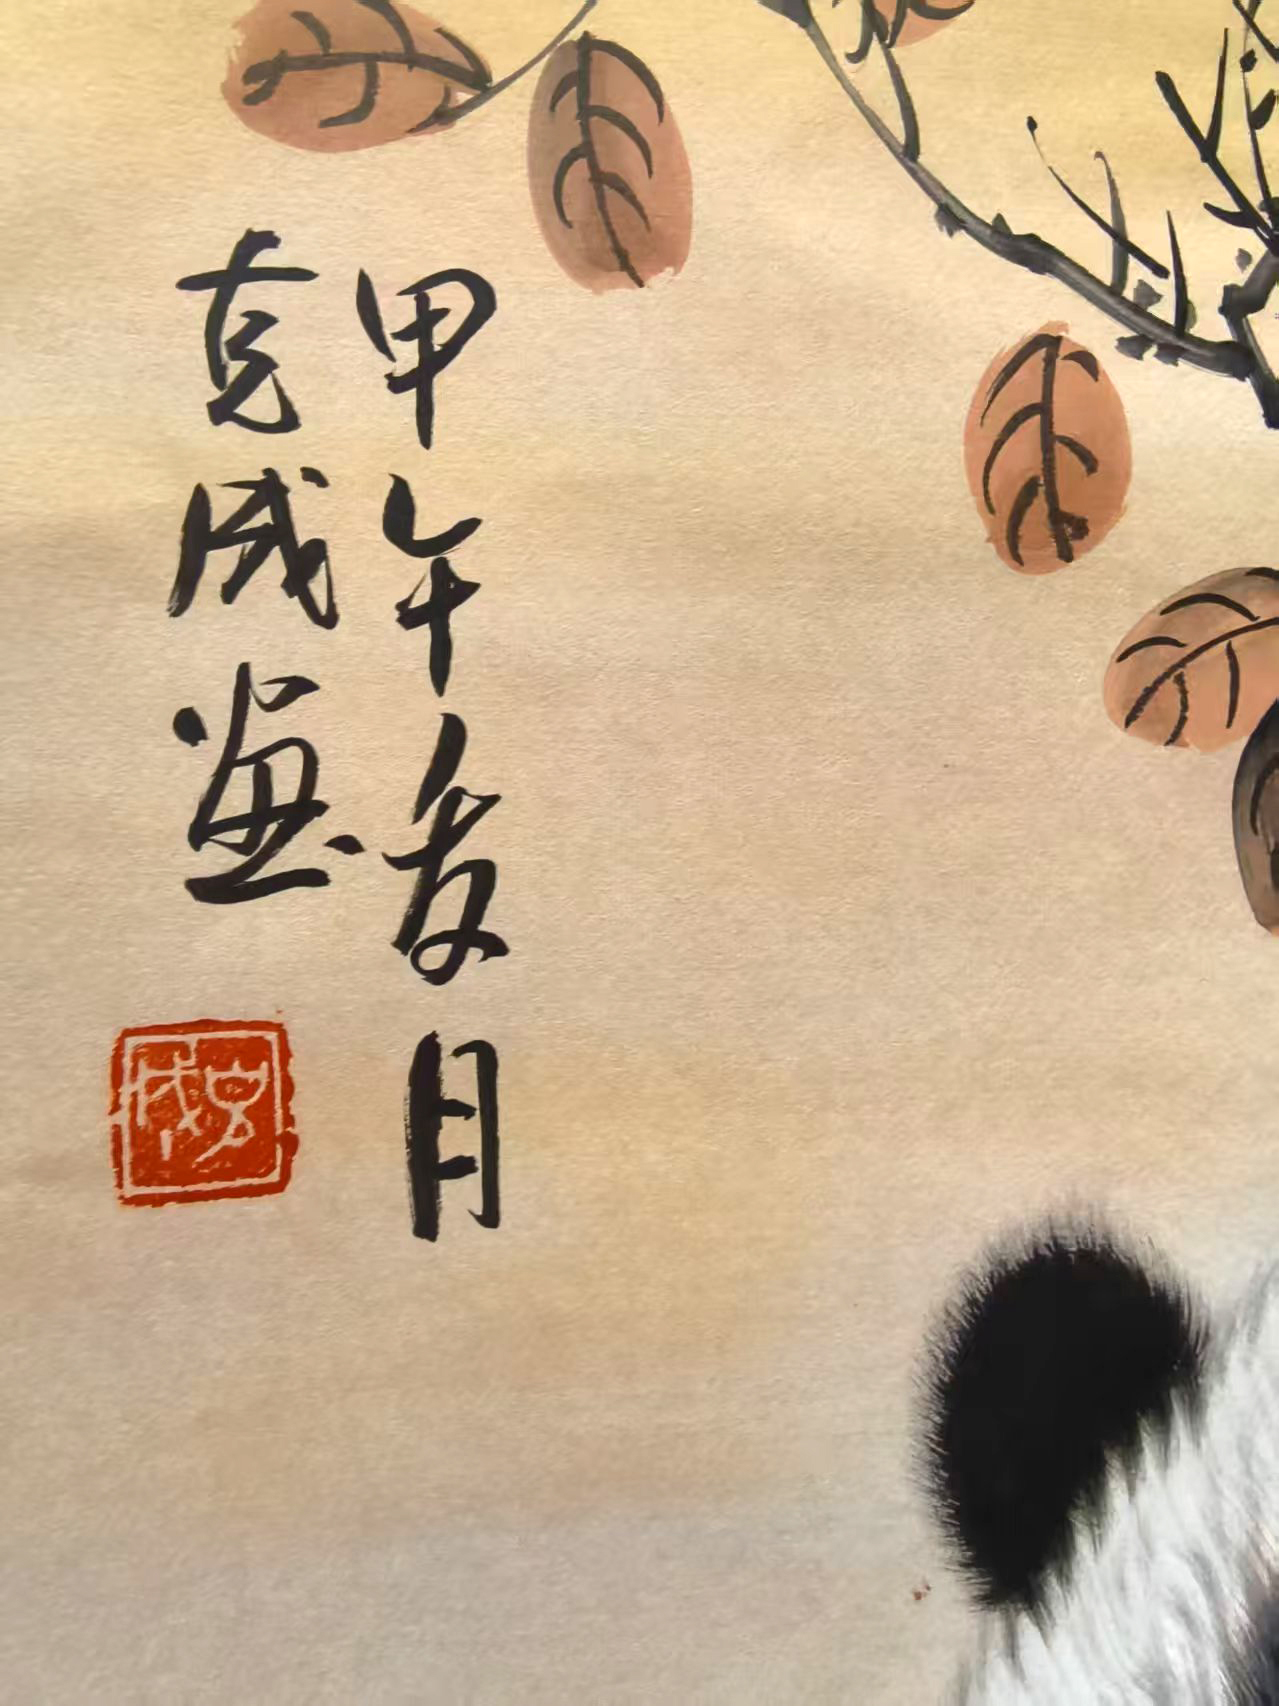 甲午夏月
克成畫
克成